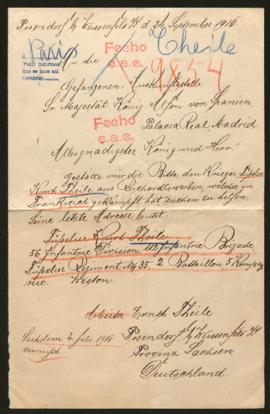 Posendorf b/ Weissenfels a/S d. 24. September 1916
Theile
Paris
Fecho
e.a.e.
9854
An die
Gefangenen-Auskunftstelle
Sr Majestät König Alfons von Spanien
Palacio Real Madrid
Fecho
e.a.e.
Allergnädigster König und Herr.
gestatte mir die Bitte den Krieger Füsilier
Kurt Theile aus
Frankreich gekämpft hat suchen zu helfen.
Seine letzte Adresse lautet:
Füsilier Kurt Theile
56 Infanterie Division, 112 Infanterie Brigade,
Füsilier Regiment No 35, 2 Bataillon, 5 Kompag-
nie. Westen.
Ernst Theile
Seitdem 4 1916
vermisst
Posendorf b/ Weissenfels a/S
Provinz Sachsen
Deutschland